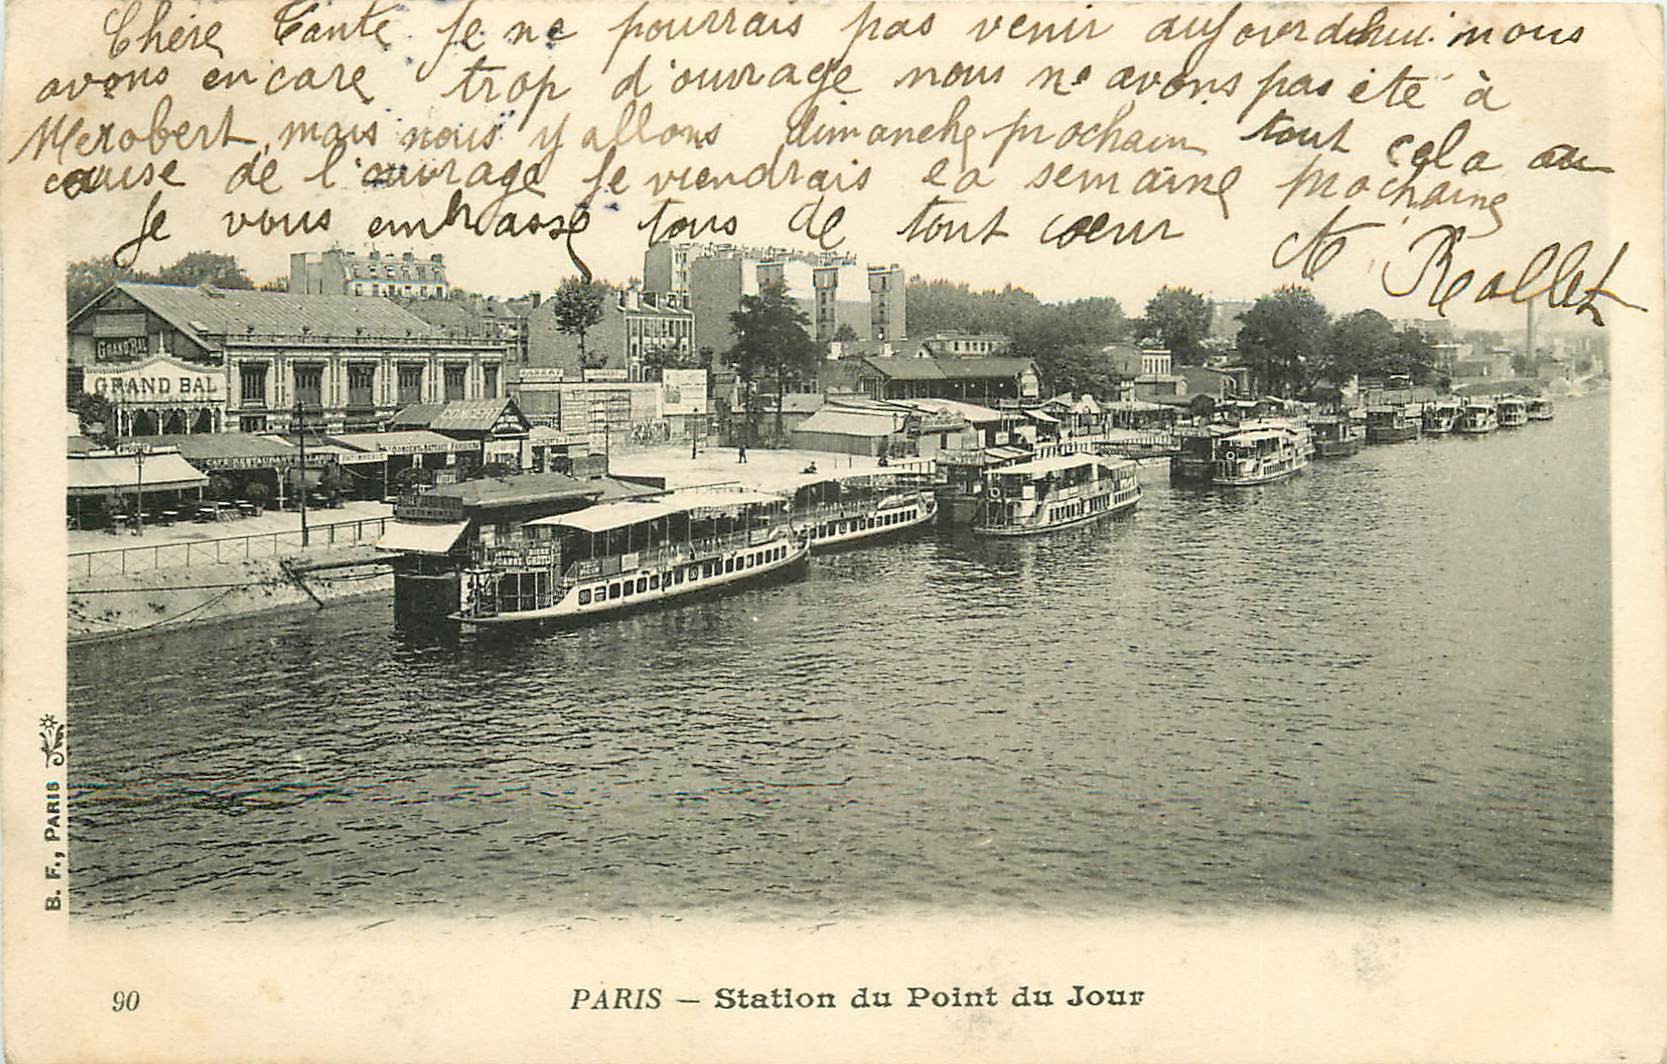 Chère Tante Je ne pourrais pas venir aujourdhui nous
avons encare trop d'ouvrage nous ne avons pas été à
Merobert, mais nous y allons dimanche prochain tout cela au
cause de l'ouvrage Je viendrais la semaine prochaine
Je vous embrasse tous de tout cœur
GRAND BAL
GRAND BAL
CONCERT
B. F., PARIS
90
PARIS — Station du Point du Jour